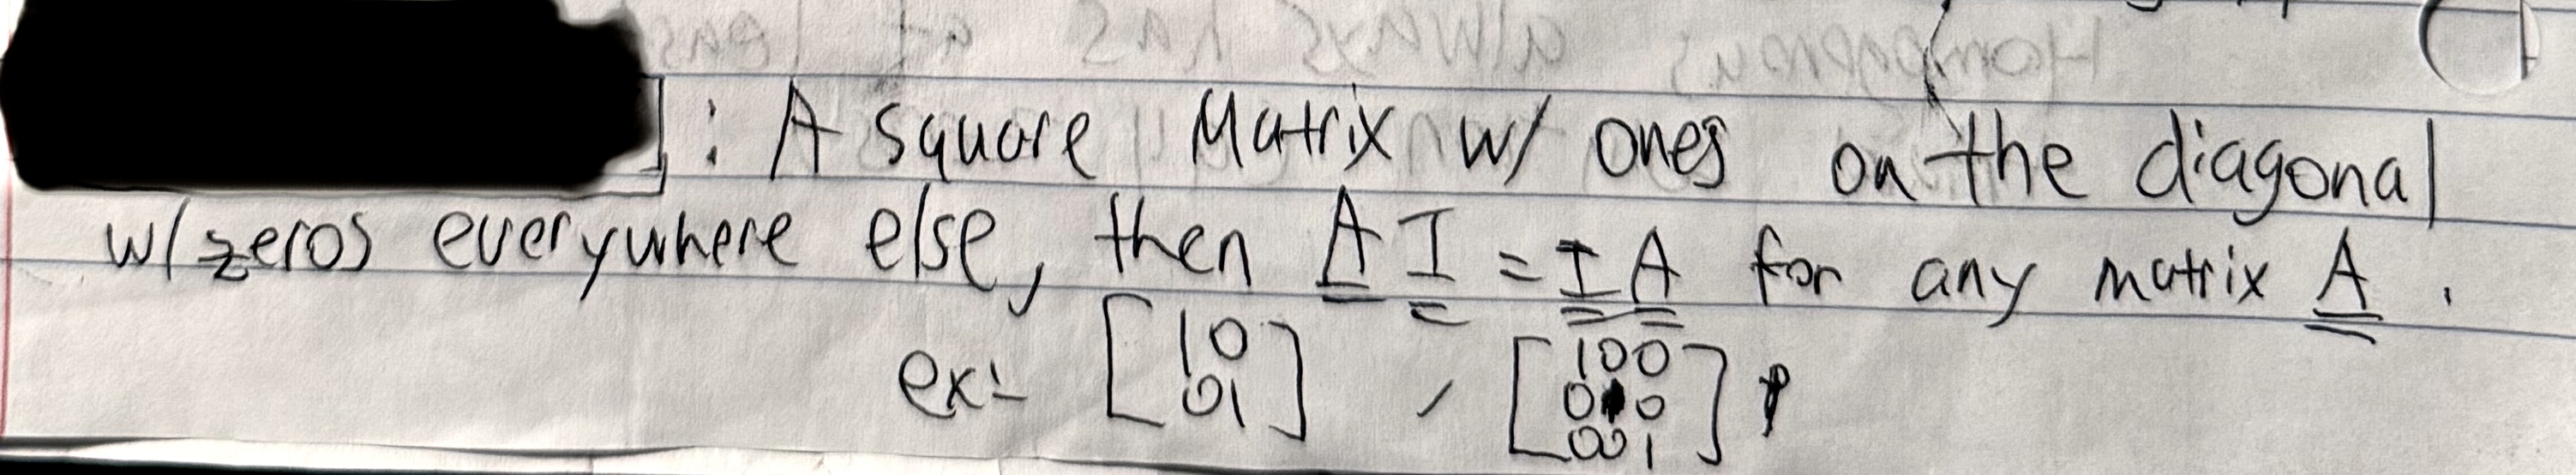 : A square Matrix w/ ones on the diagonal
w/zeros everywhere else, then A I = I A for any matrix A.
ex: [1 0
0 1] , [1 0 0
0 1 0
0 0 1]